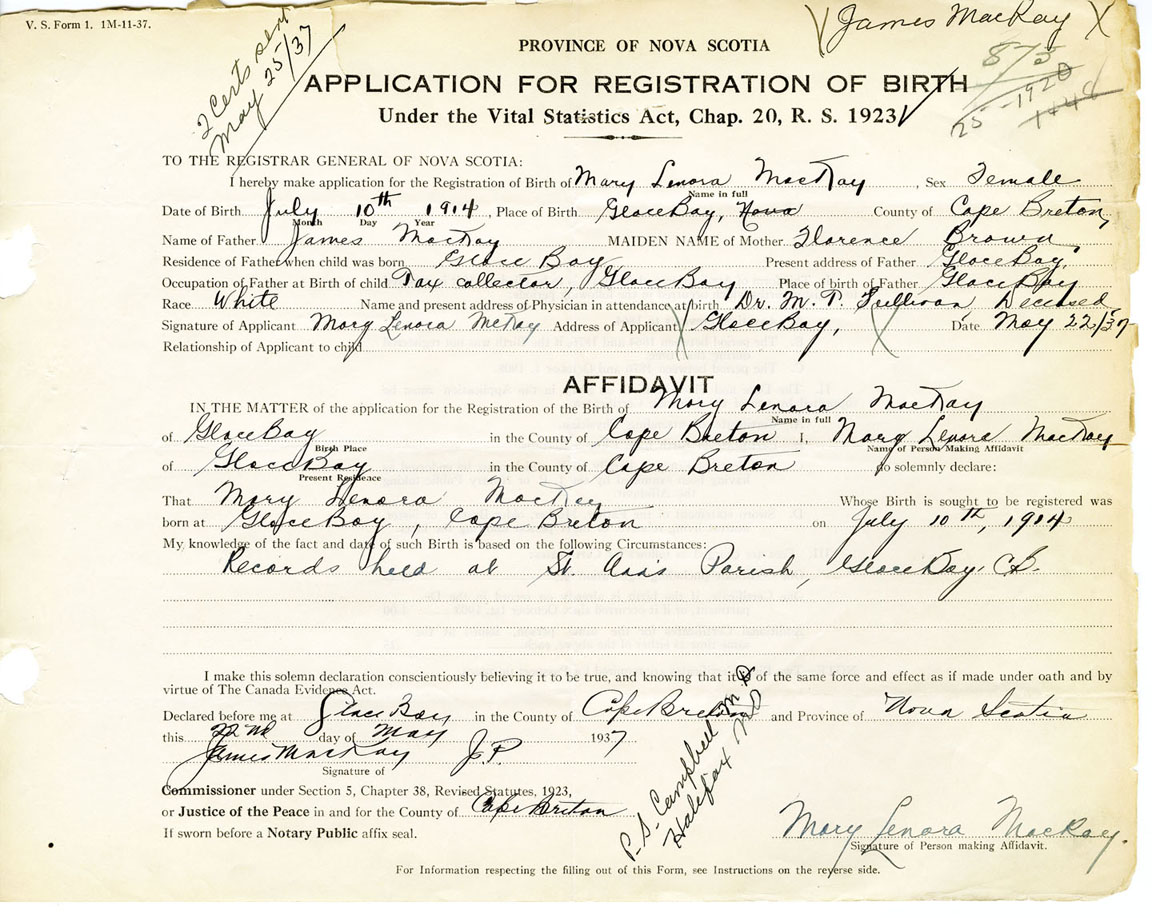 V. S. Form 1. 1M-11-37.
James MacKay
2 Certs sent
May 25/37
PROVINCE OF NOVA SCOTIA
875
25-1920
APPLICATION FOR REGISTRATION OF BIRTH
Under the Vital Statistics Act, Chap. 20, R. S. 1923
TO THE REGISTRAR GENERAL OF NOVA SCOTIA:
I hereby make application for the Registration of Birth of Mary Lenora MacKay, Sex Female
Name in full
Date of Birth July 10th 1914, Place of Birth Glace Bay, Nova County of Cape Breton,
Month Day Year
Name of Father James MacKay MAIDEN NAME of Mother Florence Brown
Residence of Father when child was born Glace Bay Present address of Father Glace Bay
Occupation of Father at Birth of child Tax collector, Glace Bay Place of birth of Father Glace Bay
Race White Name and present address of Physician in attendance at birth Dr. M. T. Sullivan, Decesed
Signature of Applicant Mary Lenora McKay Address of Applicant Glace Bay, Date May 22/37
Relationship of Applicant to child
AFFIDAVIT
IN THE MATTER of the application for the Registration of the Birth of Mary Lenora MacKay
Name in full
of Glace Bay in the County of Cape Breton I, Mary Lenora MacKay
Birth Place Name of Person Making Affidavit
of Glace Bay in the County of Cape Breton do solemnly declare:
Present Residence
That Mary Lenora MacKay Whose Birth is sought to be registered was
born at Glace Bay, Cape Breton on July 10th, 1914
My knowledge of the fact and date of such Birth is based on the following Circumstances:
Records held at St. Ann's Parish, Glace Bay. C.B.
I make this solemn declaration conscientiously believing it to be true, and knowing that it is of the same force and effect as if made under oath and by
virtue of The Canada Evidence Act.
Declared before me at Glace Bay in the County of Cape Breton and Province of Nova Scotia
this 22nd day of May 1937
James MacKay J.P.
Signature of
Commissioner under Section 5, Chapter 38, Revised Statutes, 1923,
or Justice of the Peace in and for the County of Cape Breton
If sworn before a Notary Public affix seal.
P.S. Campbell M.D
Halifax
Mary Lenora MacKay.
Signature of Person making Affidavit.
For Information respecting the filling out of this Form, see Instructions on the reverse side.